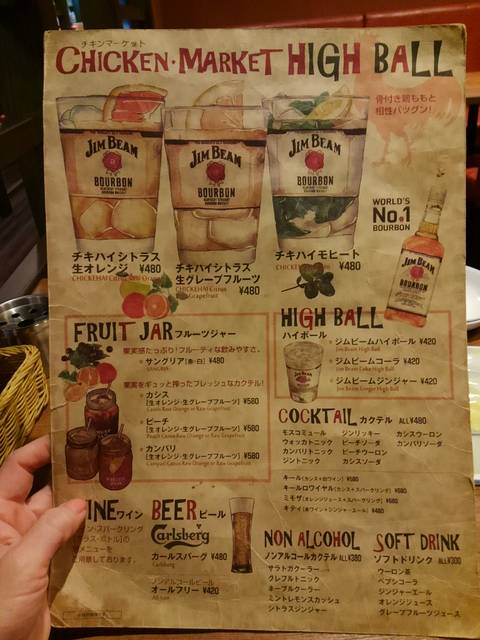 チキンマーケット
CHICKEN・MARKET HIGH BALL
骨付き鶏ももと
相性バツグン!
JIM BEAM
BOURBON
JIM BEAM
BOURBON
JIM BEAM
BOURBON
WORLD'S
No.1
BOURBON
JIM BEAM
チキハイシトラス
生オレンジ ¥480
チキハイシトラス
生グレープフルーツ
¥480
チキハイモヒート
¥480
FRUIT JAR フルーツジャー
果実感たっぷり!フルーティな飲みやすさ。
サングリア[赤・白] ¥480
SANGRIA
果実をギュッと搾ったフレッシュなカクテル!
カシス
[生オレンジ・生グレープフルーツ] ¥580
Cassis Raw Orange or Raw Grapefruit
ピーチ
[生オレンジ・生グレープフルーツ] ¥580
Peach Raw Orange or Raw Grapefruit
カンパリ
[生オレンジ・生グレープフルーツ] ¥580
Campari Raw Orange or Raw Grapefruit
HIGH BALL
ハイボール
ジムビームハイボール ¥420
Jim Beam High Ball
ジムビームコーラ ¥420
Jim Beam Coke High Ball
ジムビームジンジャー ¥420
Jim Beam Ginger High Ball
COCKTAIL カクテル ALL¥480
モスコミュール ジンリッキー カシスウーロン
ウォッカトニック ピーチソーダ カンパリソーダ
カンパリトニック ピーチウーロン
ジントニック カシスソーダ
キール(カシス+白ワイン) ¥580
キールロワイヤル(カシス+スパークリング) ¥580
ミモザ(オレンジジュース+スパークリング) ¥580
キティ(赤ワイン+ジンジャーエール) ¥480
INE ワイン
ン・スパークリング
ラス・ボトル]の
メニューを
用意しております。
BEER ビール
Carlsberg
カールスバーグ ¥480
Carlsberg
ノンアルコールビール
オールフリー ¥420
All-free
NON ALCOHOL
ノンアルコールカクテル ALL¥380
サラトガクーラー
クレフルトニック
オーブルクーラー
ミントレモンスカッシュ
シトラスジンジャー
SOFT DRINK
ソフトドリンク ALL¥300
ウーロン茶
ペプシコーラ
ジンジャーエール
オレンジジュース
グレープフルーツジュース